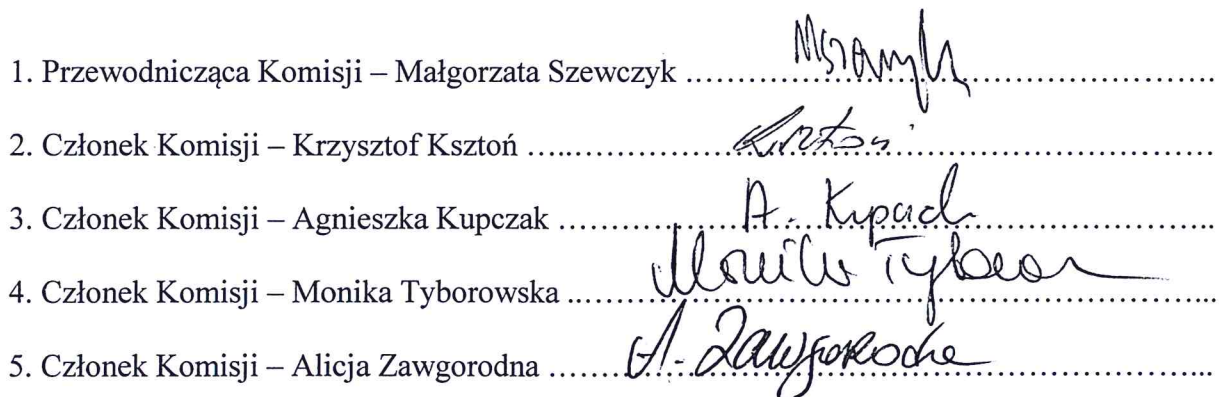 1. Przewodnicząca Komisji – Małgorzata Szewczyk ……………………………………………..
2. Członek Komisji – Krzysztof Ksztoń …..………………………………………………………
3. Członek Komisji – Agnieszka Kupczak ……A. Kupczak…………………………..
4. Członek Komisji – Monika Tyborowska ..……Monika Tyborow……………...
5. Członek Komisji – Alicja Zawgorodna ……A. Zawgorodna……………………...